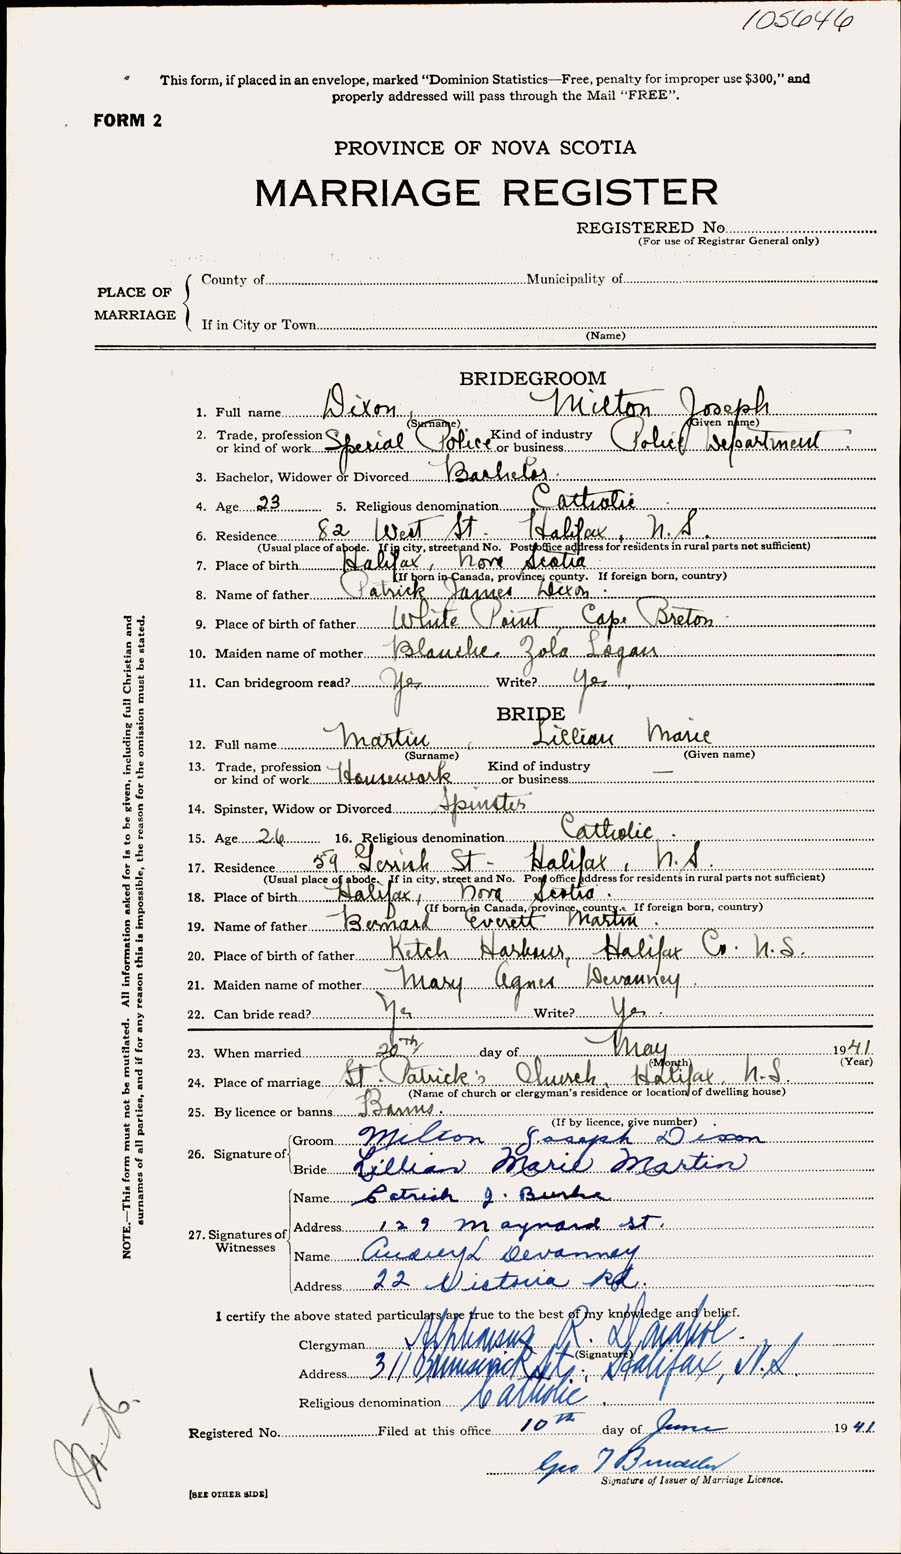 105646
This form, if placed in an envelope, marked “Dominion Statistics—Free, penalty for improper use $300,” and
properly addressed will pass through the Mail “FREE”.
FORM 2
PROVINCE OF NOVA SCOTIA
MARRIAGE REGISTER
REGISTERED No
(For use of Registrar General only)
PLACE OF MARRIAGE
County of Municipality of
If in City or Town
(Name)
BRIDEGROOM
1. Full name Dixon, Milton Joseph
(Surname) (Given name)
2. Trade, profession or kind of work Special Police Kind of industry or business Police Department.
3. Bachelor, Widower or Divorced Bachelor.
4. Age 23 5. Religious denomination Catholic
6. Residence 82 West St. Halifax, N.S.
(Usual place of abode. If in city, street and No. Post office address for residents in rural parts not sufficient)
7. Place of birth Halifax, Nova Scotia
(If born in Canada, province, county. If foreign born, country)
8. Name of father Patrick James Dixon.
9. Place of birth of father White Point, Cape Breton
10. Maiden name of mother Blanche Zola Logan
11. Can bridegroom read? Yes Write? Yes,
BRIDE
12. Full name Martin, Lillian Marie
(Surname) (Given name)
13. Trade, profession or kind of work Housework Kind of industry or business —
14. Spinster, Widow or Divorced Spinster
15. Age 26 16. Religious denomination Catholic.
17. Residence 59 St- Halifax, N.S.
(Usual place of abode. If in city, street and No. Post office address for residents in rural parts not sufficient)
18. Place of birth Halifax, Nova Scotia.
(If born in Canada, province, county. If foreign born, country)
19. Name of father Bernard Everett Martin.
20. Place of birth of father Ketch Harbour, Halifax Co. N.S.
21. Maiden name of mother Mary Agnes Devanney.
22. Can bride read? Yes Write? Yes.
23. When married 20th day of May 1941
(Month) (Year)
24. Place of marriage St. Patrick's Church, Halifax, N.S.
(Name of church or clergyman's residence or location of dwelling house)
25. By licence or banns Banns.
(If by licence, give number)
26. Signature of
Groom Milton Joseph Dixon
Bride Lillian Marie Martin
27. Signatures of Witnesses
Name Patrick J. Burke
Address 129 Maynard St.
Name Audrey L Devanney
Address 22 Victoria Rd.
I certify the above stated particulars are true to the best of my knowledge and belief.
Clergyman Alphonsus R.
(Signature)
Address 311 Brunswick St., Halifax, N.S.
Religious denomination Catholic.
Registered No. Filed at this office 10th day of June 1941
Geo T
Signature of Issuer of Marriage Licence.
[SEE OTHER SIDE]
NOTE.—This form must not be mutilated. All information asked for is to be given, including full Christian and
surnames of all parties, and if for any reason this is impossible, the reason for the omission must be stated.